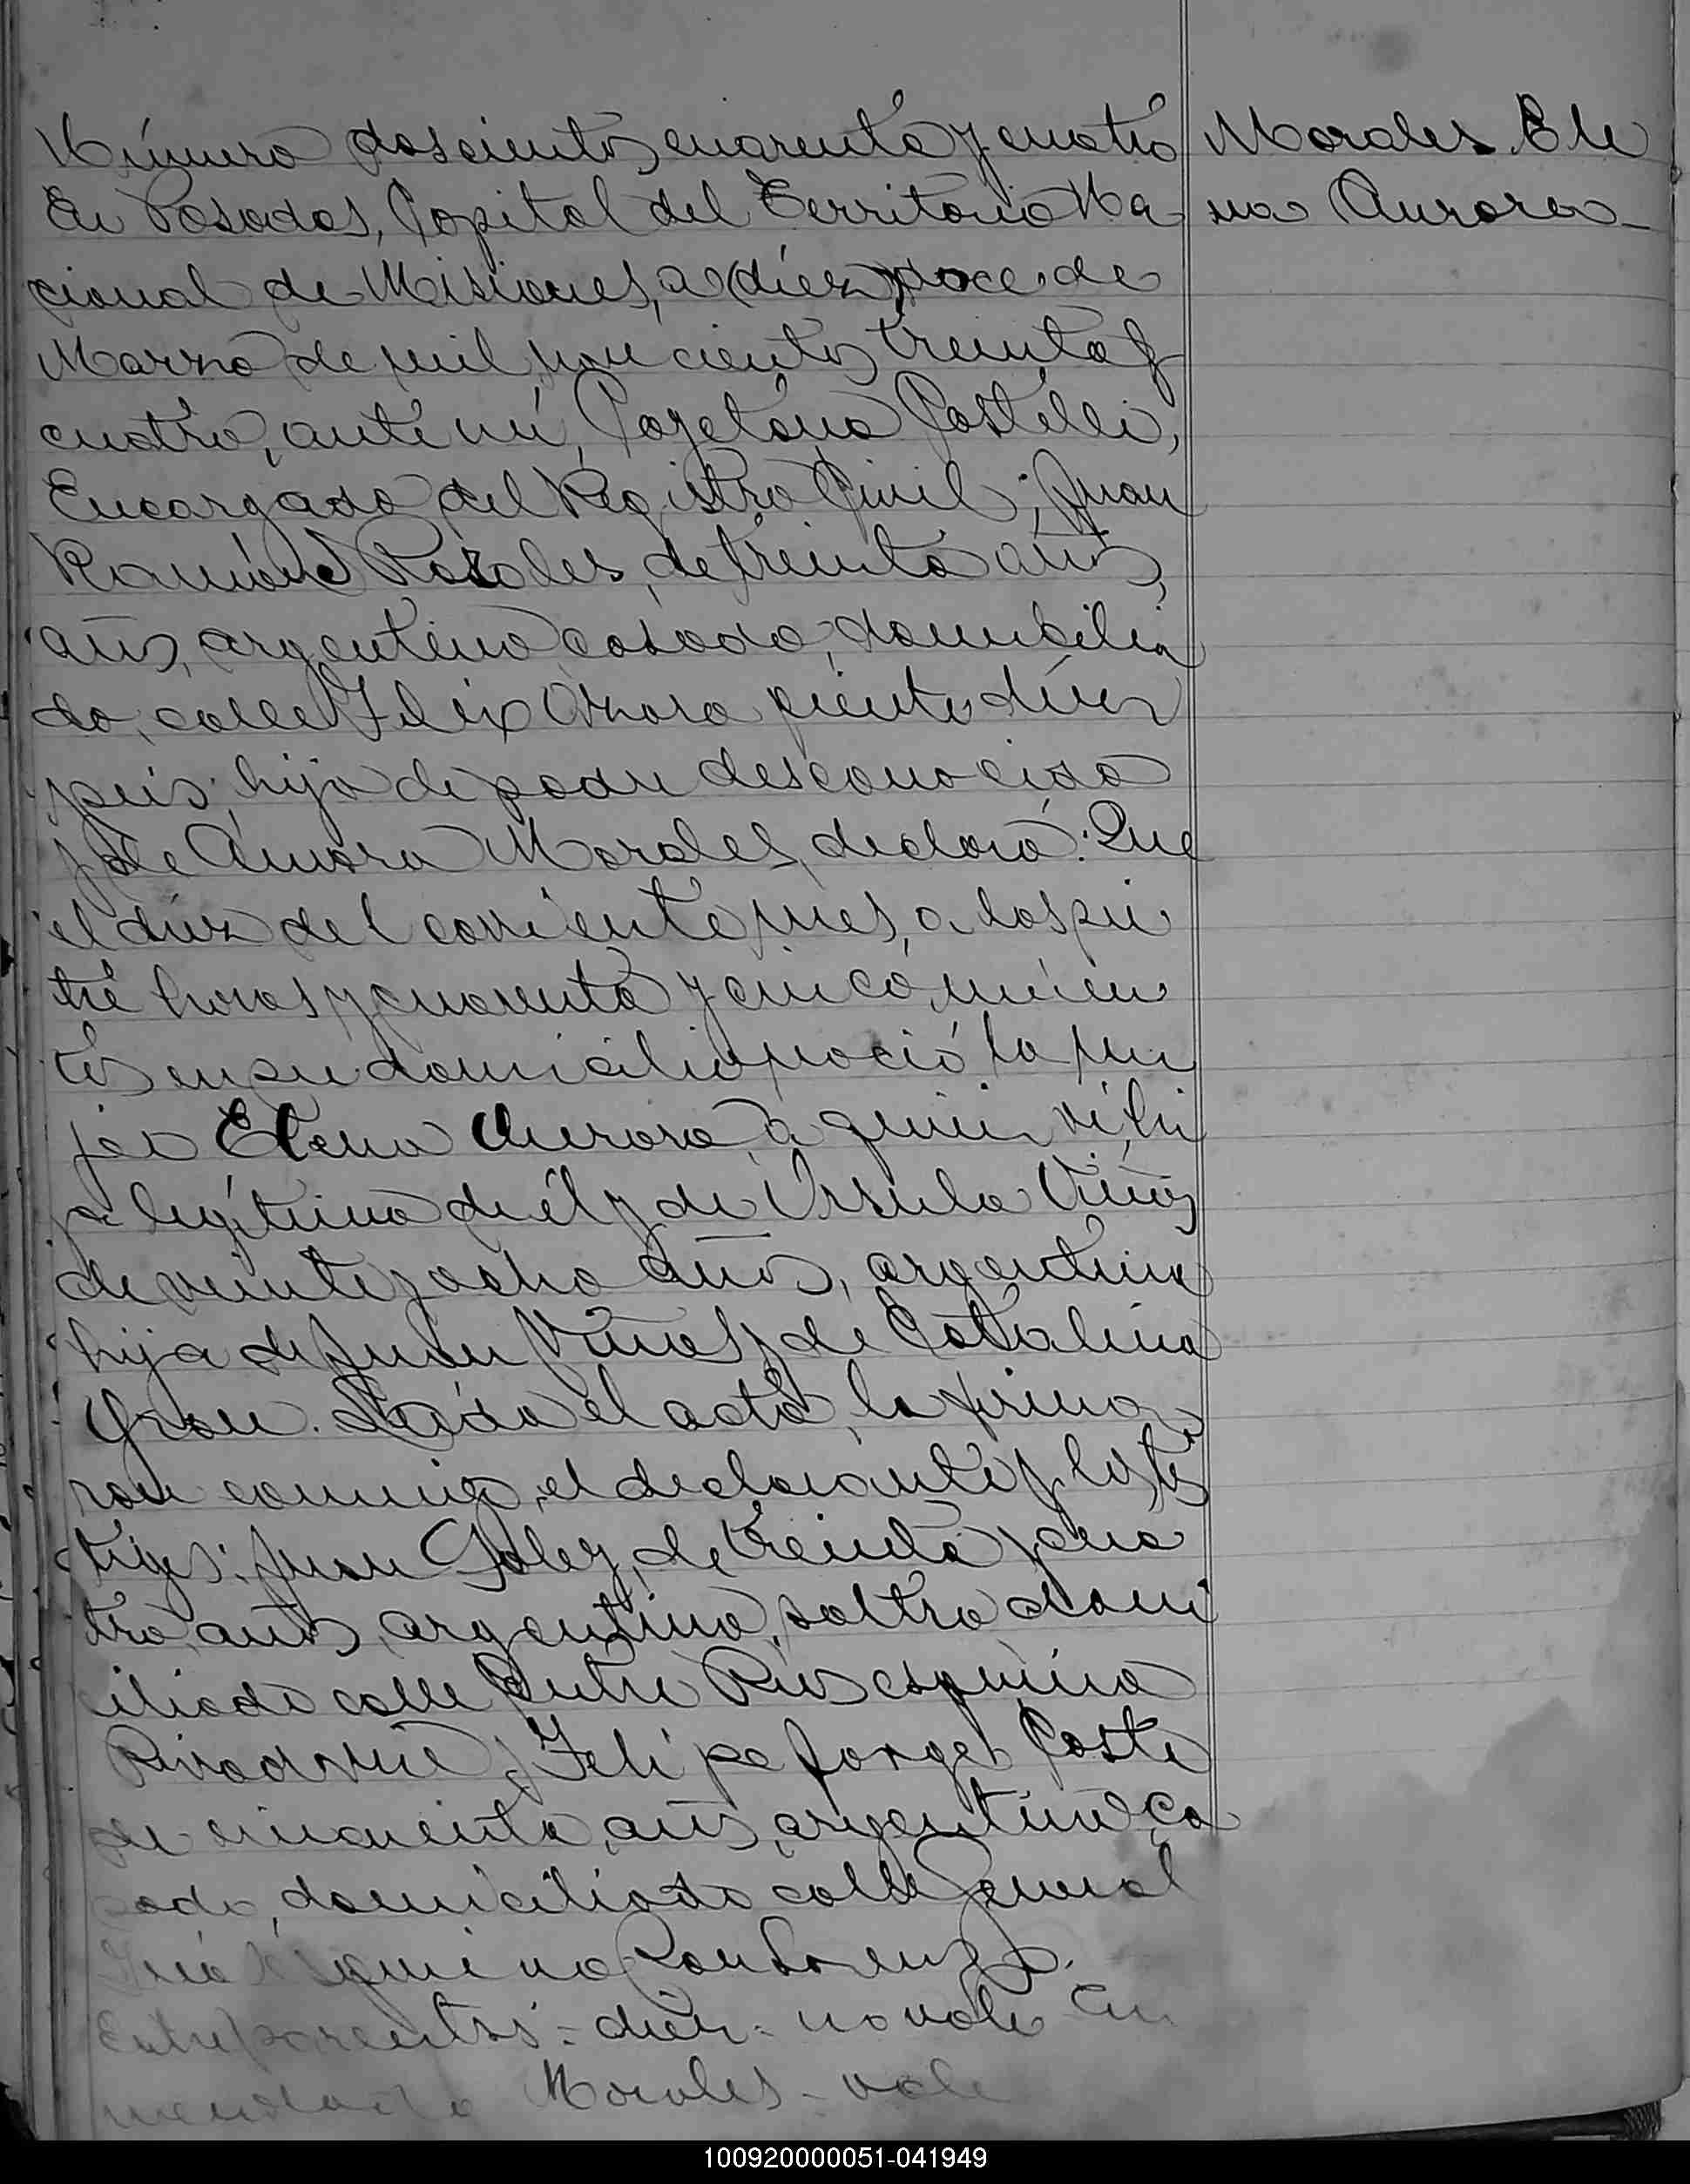 Número doscientos cuarenta y cuatro
En Posadas, Capital del Territorio Na
cional de Misiones, a (diez) doce de
Marzo de mil novecientos treinta y
cuatro, ante mí, Cayetano Castelli,
Encargado del Registro Civil; Juan
Ramón Morales, de treinta años,
años, argentino casado, domicilia
do, calle Félix Azara ciento diez
y seis, hijo de padre desconocido
y de Aurora Morales, declaró: Que
el diez del corriente mes, a las sie
te horas y cuarenta y cinco minu
tos en su domicilio nació la mu
jer Elena Aurora, a quien vi, hi
ja legítima de él y de Úrsula Viñas
de veinte y ocho años, argentina
hija de Juan Viñas y de Catalina
Grau. Leída el acta, la firma
ron conmigo, el declarante y los tes
tigos: Juan Goley, de treinta y cua
tro, años, argentino, soltro domi
ciliado calle Entre Rios esquina
Rivadavia y Felipe Jorge Coste
de cincuenta, años, argentino ca
sado, domiciliado calle General
esquina San Lorenzo.
Entreparentsis: diez: no vale En
mendado Morales - vale
Morales Ele
na Aurora
100920000051-041949